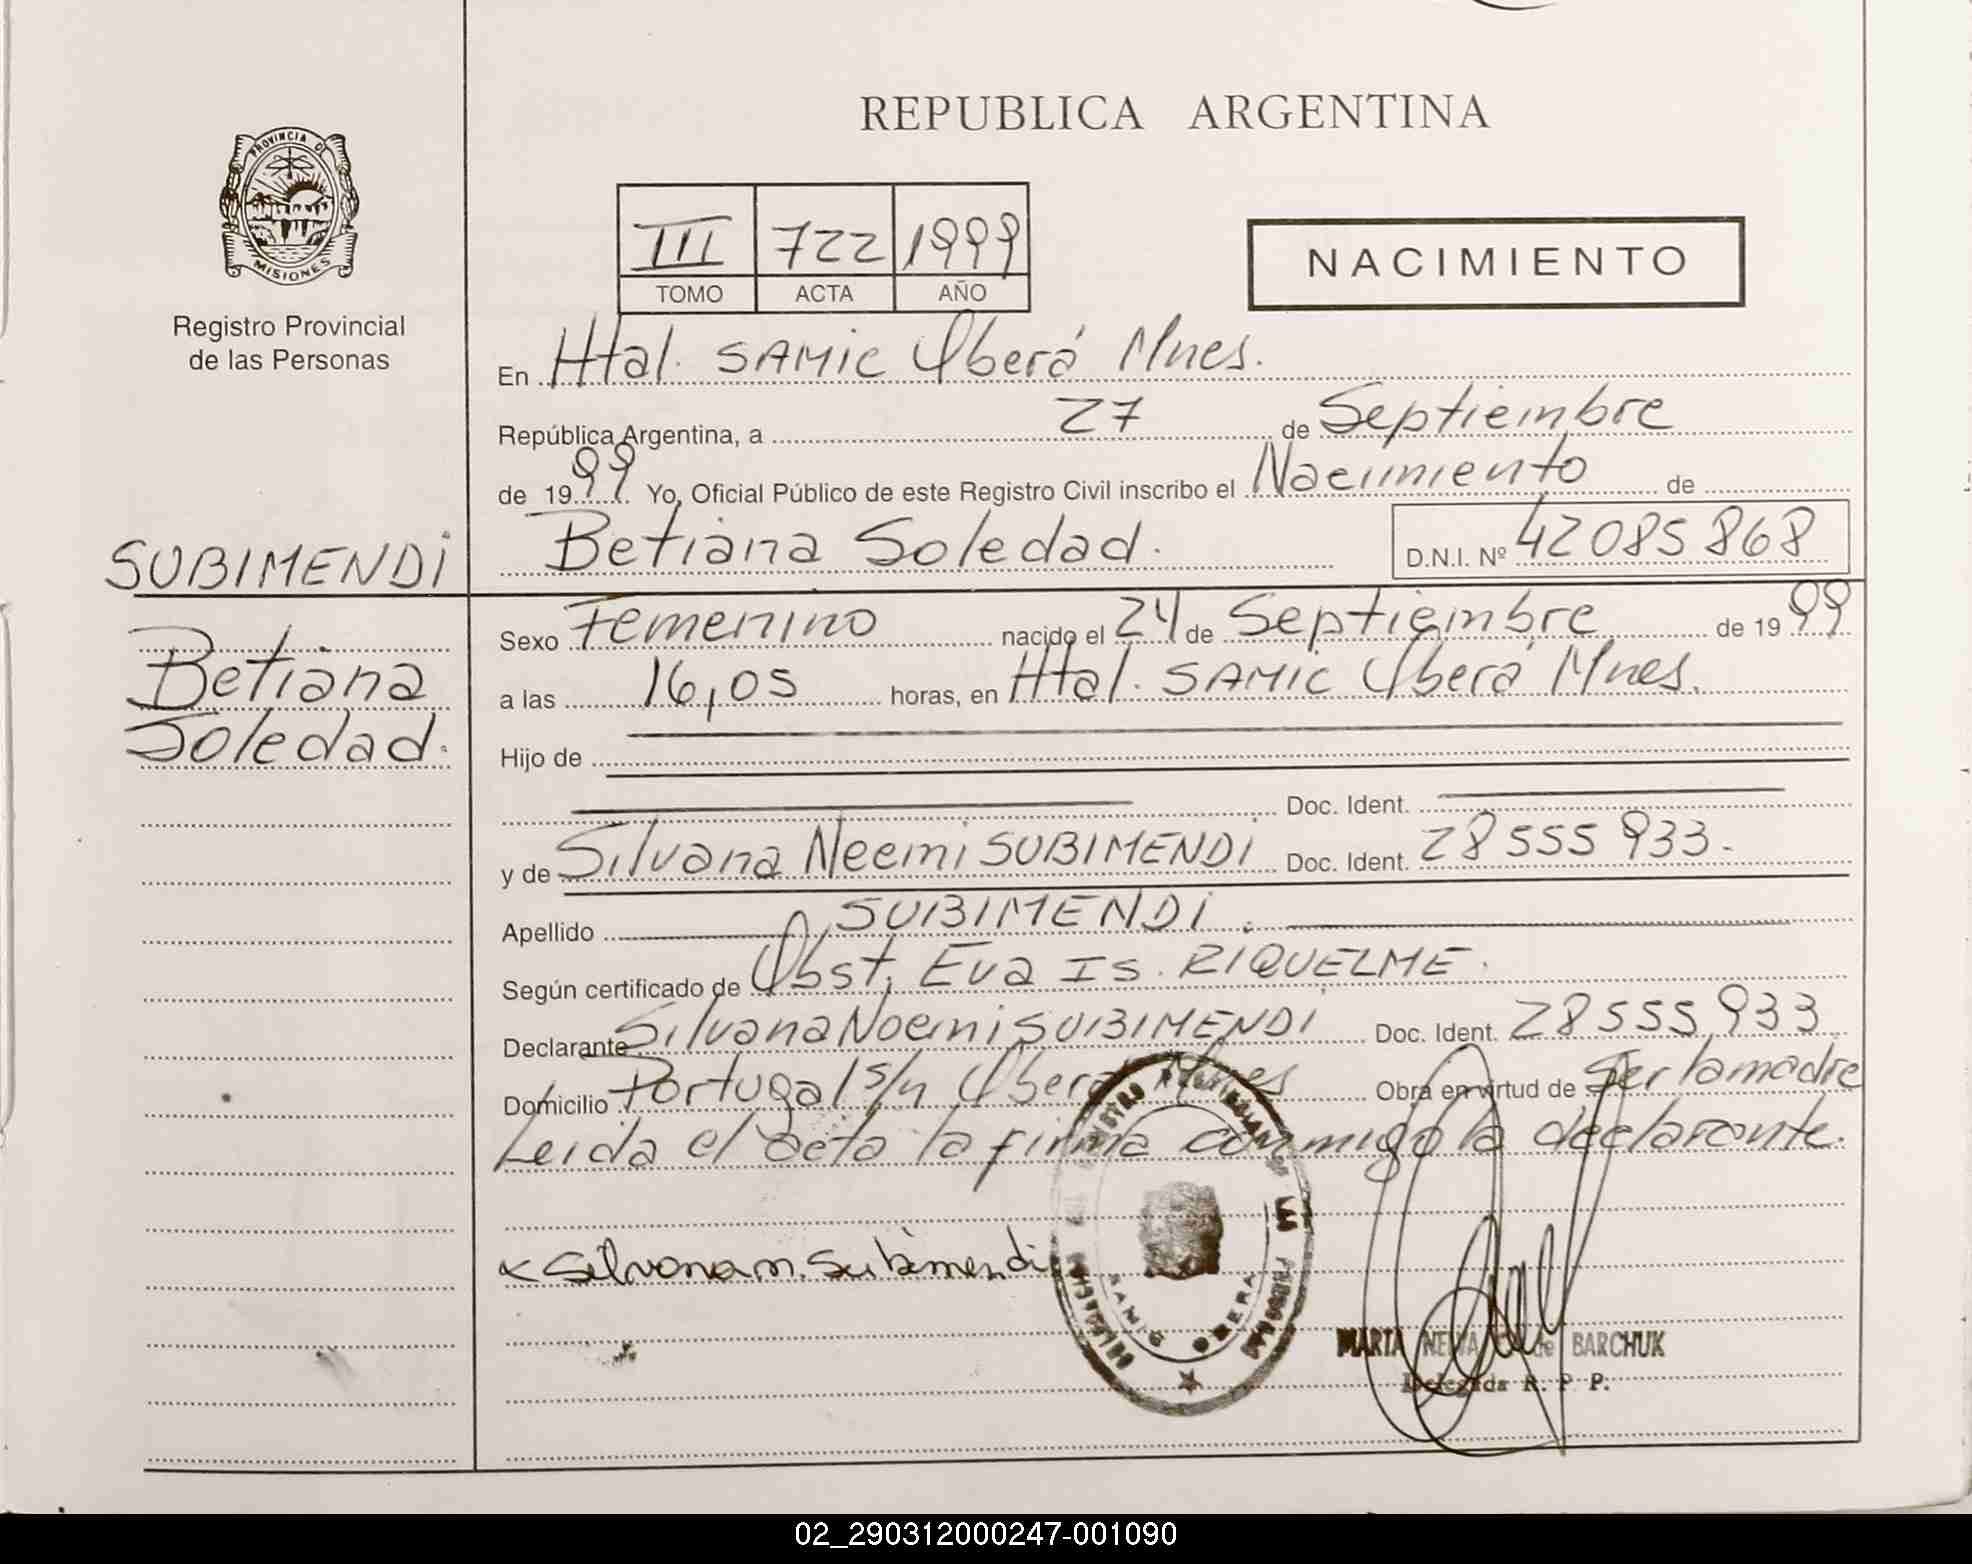 REPUBLICA ARGENTINA
PROVINCIA DE
MISIONES
Registro Provincial
de las Personas
III 722 1999
TOMO ACTA AÑO
NACIMIENTO
En Htal. SAMIC Oberá Mnes.
República Argentina, a 27 de Septiembre
de 1999 Yo, Oficial Público de este Registro Civil inscribo el Nacimiento de
Betiana Soledad. D.N.I. Nº 42085868
SUBIMENDI
Betiana
Soledad.
Sexo Femenino nacido el 24 de Septiembre de 1999
a las 16,05 horas, en Htal. SAMIC Oberá Mnes.
Hijo de
Doc. Ident.
y de Silvana Neemi SUBIMENDI Doc. Ident. 28555933.
Apellido SUBIMENDI.
Según certificado de Obst. Eva Is. RIQUELME.
Declarante Silvana Noemi SUBIMENDI Doc. Ident. 28555933
Domicilio Portugal s/n Oberá Mnes Obra en virtud de Ser la madre
Leida el acta la firma conmigo la declarante.
Silvana n. Subimendi
SAMIC OBERA
MARIA de BARCHUK
Delegada R. P. P.
02_290312000247-001090